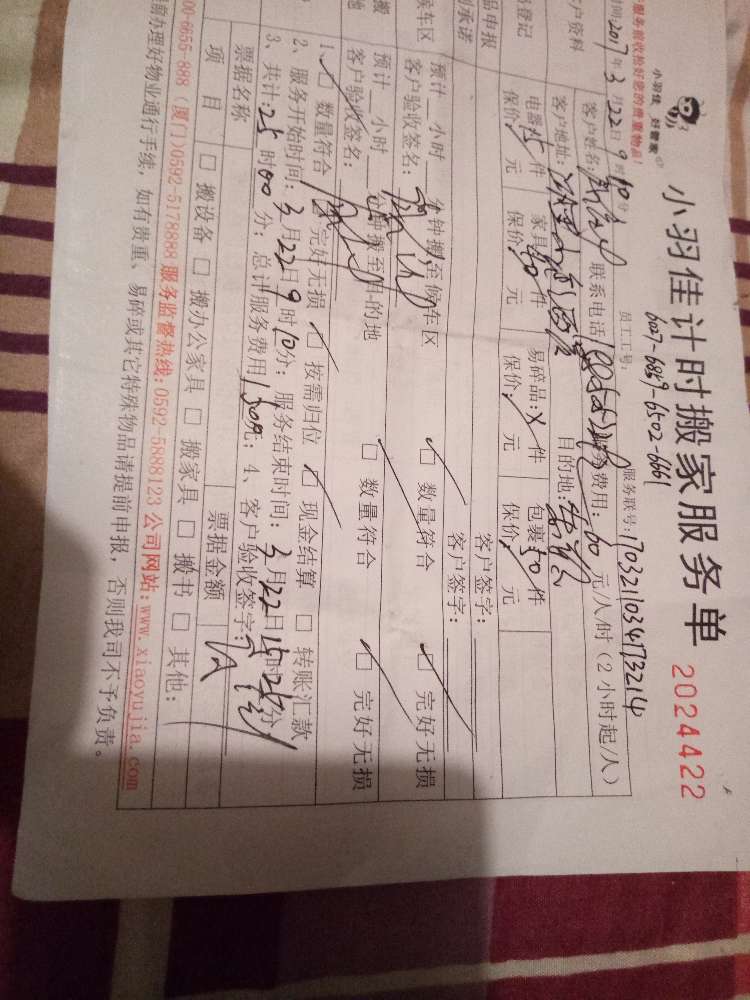 小羽佳 好管家
小羽佳计时搬家服务单 2024422
服务前收拾好您的贵重物品!
员工工号: 6007-6849-6502-6661 服务联号: 1703211034173214
时间: 2017年3月22日9时10分
客户资料
客户姓名: 联系电话 费用: 60元/人/时(2小时起/人)
客户地址: 目的地:
品登记
电器 15件 家具 件 易碎品: X件 包裹50件
品申报
保价 元 保价 元 保价 元 保价 元
承诺
客户签字:
客户签字:
候车区
预计 小时 分钟搬至候车区
客户验收签名: 数量符合 完好无损
搬
预计 小时 分钟搬至目的地
地
客户验收签名: 数量符合 完好无损
1、数量符合 完好无损 按需归位 现金结算 转账汇款
2、服务开始时间: 3月22日9时10分; 服务结束时间: 3月22日15时25分
3、共计: 25时00分; 总计服务费用1500元; 4、客户验收签字:
票据名称 票据金额
项目 搬设备 搬办公家具 搬家具 搬书 其他:
00-6655-888 (厦门)0592-5178888 服务监督热线:0592-5888123 公司网站:www.xiaoyujia.com
前办理好物业通行手续, 如有贵重、易碎或其它特殊物品请提前申报, 否则我司不予负责。